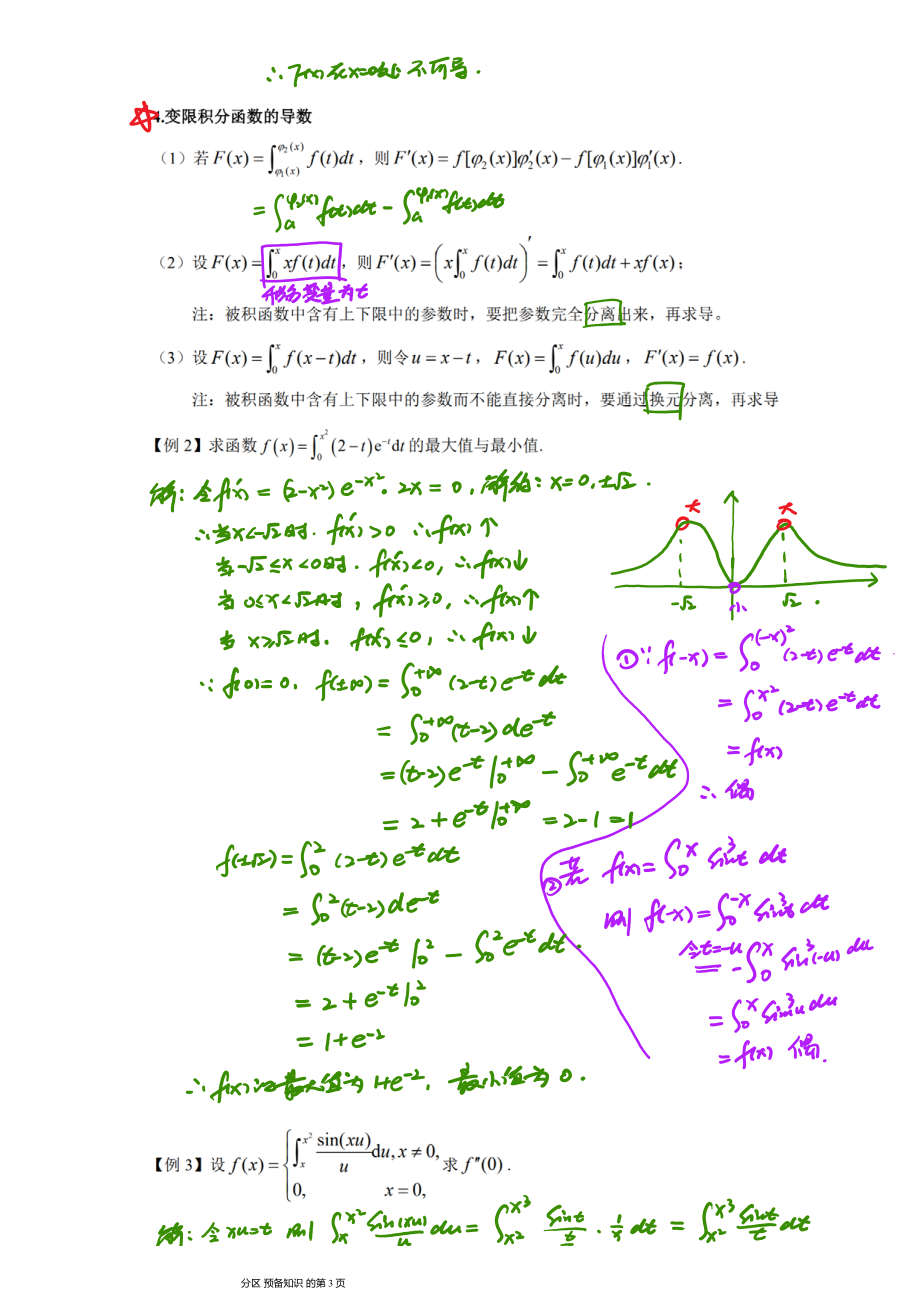 ∴ f(x)在x=0处不可导.
4.变限积分函数的导数
（1）若F(x)=∫_{φ₁(x)}^{φ₂(x)} f(t)dt，则F′(x)=f[φ₂(x)]φ₂′(x)−f[φ₁(x)]φ₁′(x).
=∫_a^{φ₂(x)} f(t)dt − ∫_a^{φ₁(x)} f(t)dt
（2）设F(x)=∫_0^x xf(t)dt，则F′(x)=(x∫_0^x f(t)dt)′=∫_0^x f(t)dt+xf(x)；
积分变量为t
注：被积函数中含有上下限中的参数时，要把参数完全分离出来，再求导。
（3）设F(x)=∫_0^x f(x−t)dt，则令u=x−t，F(x)=∫_0^x f(u)du，F′(x)=f(x).
注：被积函数中含有上下限中的参数而不能直接分离时，要通过换元分离，再求导
【例2】求函数f(x)=∫_0^{x²}(2−t)e^{−t}dt的最大值与最小值.
解：令f′(x)=(2−x²)e^{−x²}·2x=0，解的：x=0,±√2.
∴当x<−√2时. f′(x)>0 ∴f(x)↑
当−√2≤x<0时. f′(x)<0，∴f(x)↓
当0≤x<√2时，f′(x)≥0，∴f(x)↑
当x≥√2时. f′(x)≤0，∴f(x)↓
大 大
−√2 小 √2 .
∵f(0)=0. f(±∞)=∫_0^{+∞}(2−t)e^{−t}dt
=∫_0^{+∞}(t−2)de^{−t}
=(t−2)e^{−t}|_0^{+∞} − ∫_0^{+∞}e^{−t}dt
=2+e^{−t}|_0^{+∞}=2−1=1
f(±√2)=∫_0^2(2−t)e^{−t}dt
=∫_0^2(t−2)de^{−t}
=(t−2)e^{−t}|_0^2 − ∫_0^2 e^{−t}dt.
=2+e^{−t}|_0^2
=1+e^{−2}
∴f(x)的最大值为1+e^{−2}，最小值为0.
①∵f(−x)=∫_0^{(−x)²}(2−t)e^{−t}dt
=∫_0^{x²}(2−t)e^{−t}dt
=f(x)
∴偶
②若 f(x)=∫_0^x sin³t dt
则f(−x)=∫_0^{−x} sin³t dt
令t=−u = −∫_0^x sin³(−u)du
=∫_0^x sin³u du
=f(x) 偶.
【例3】设f(x)={∫_x^{x²} sin(xu)/u du, x≠0, 0, x=0, 求f″(0).
解：令xu=t 则∫_x^{x²} sin(xu)/u du=∫_{x²}^{x³} sint/(t/x)·1/x dt=∫_{x²}^{x³} sint/t dt
分区 预备知识 的第 3 页